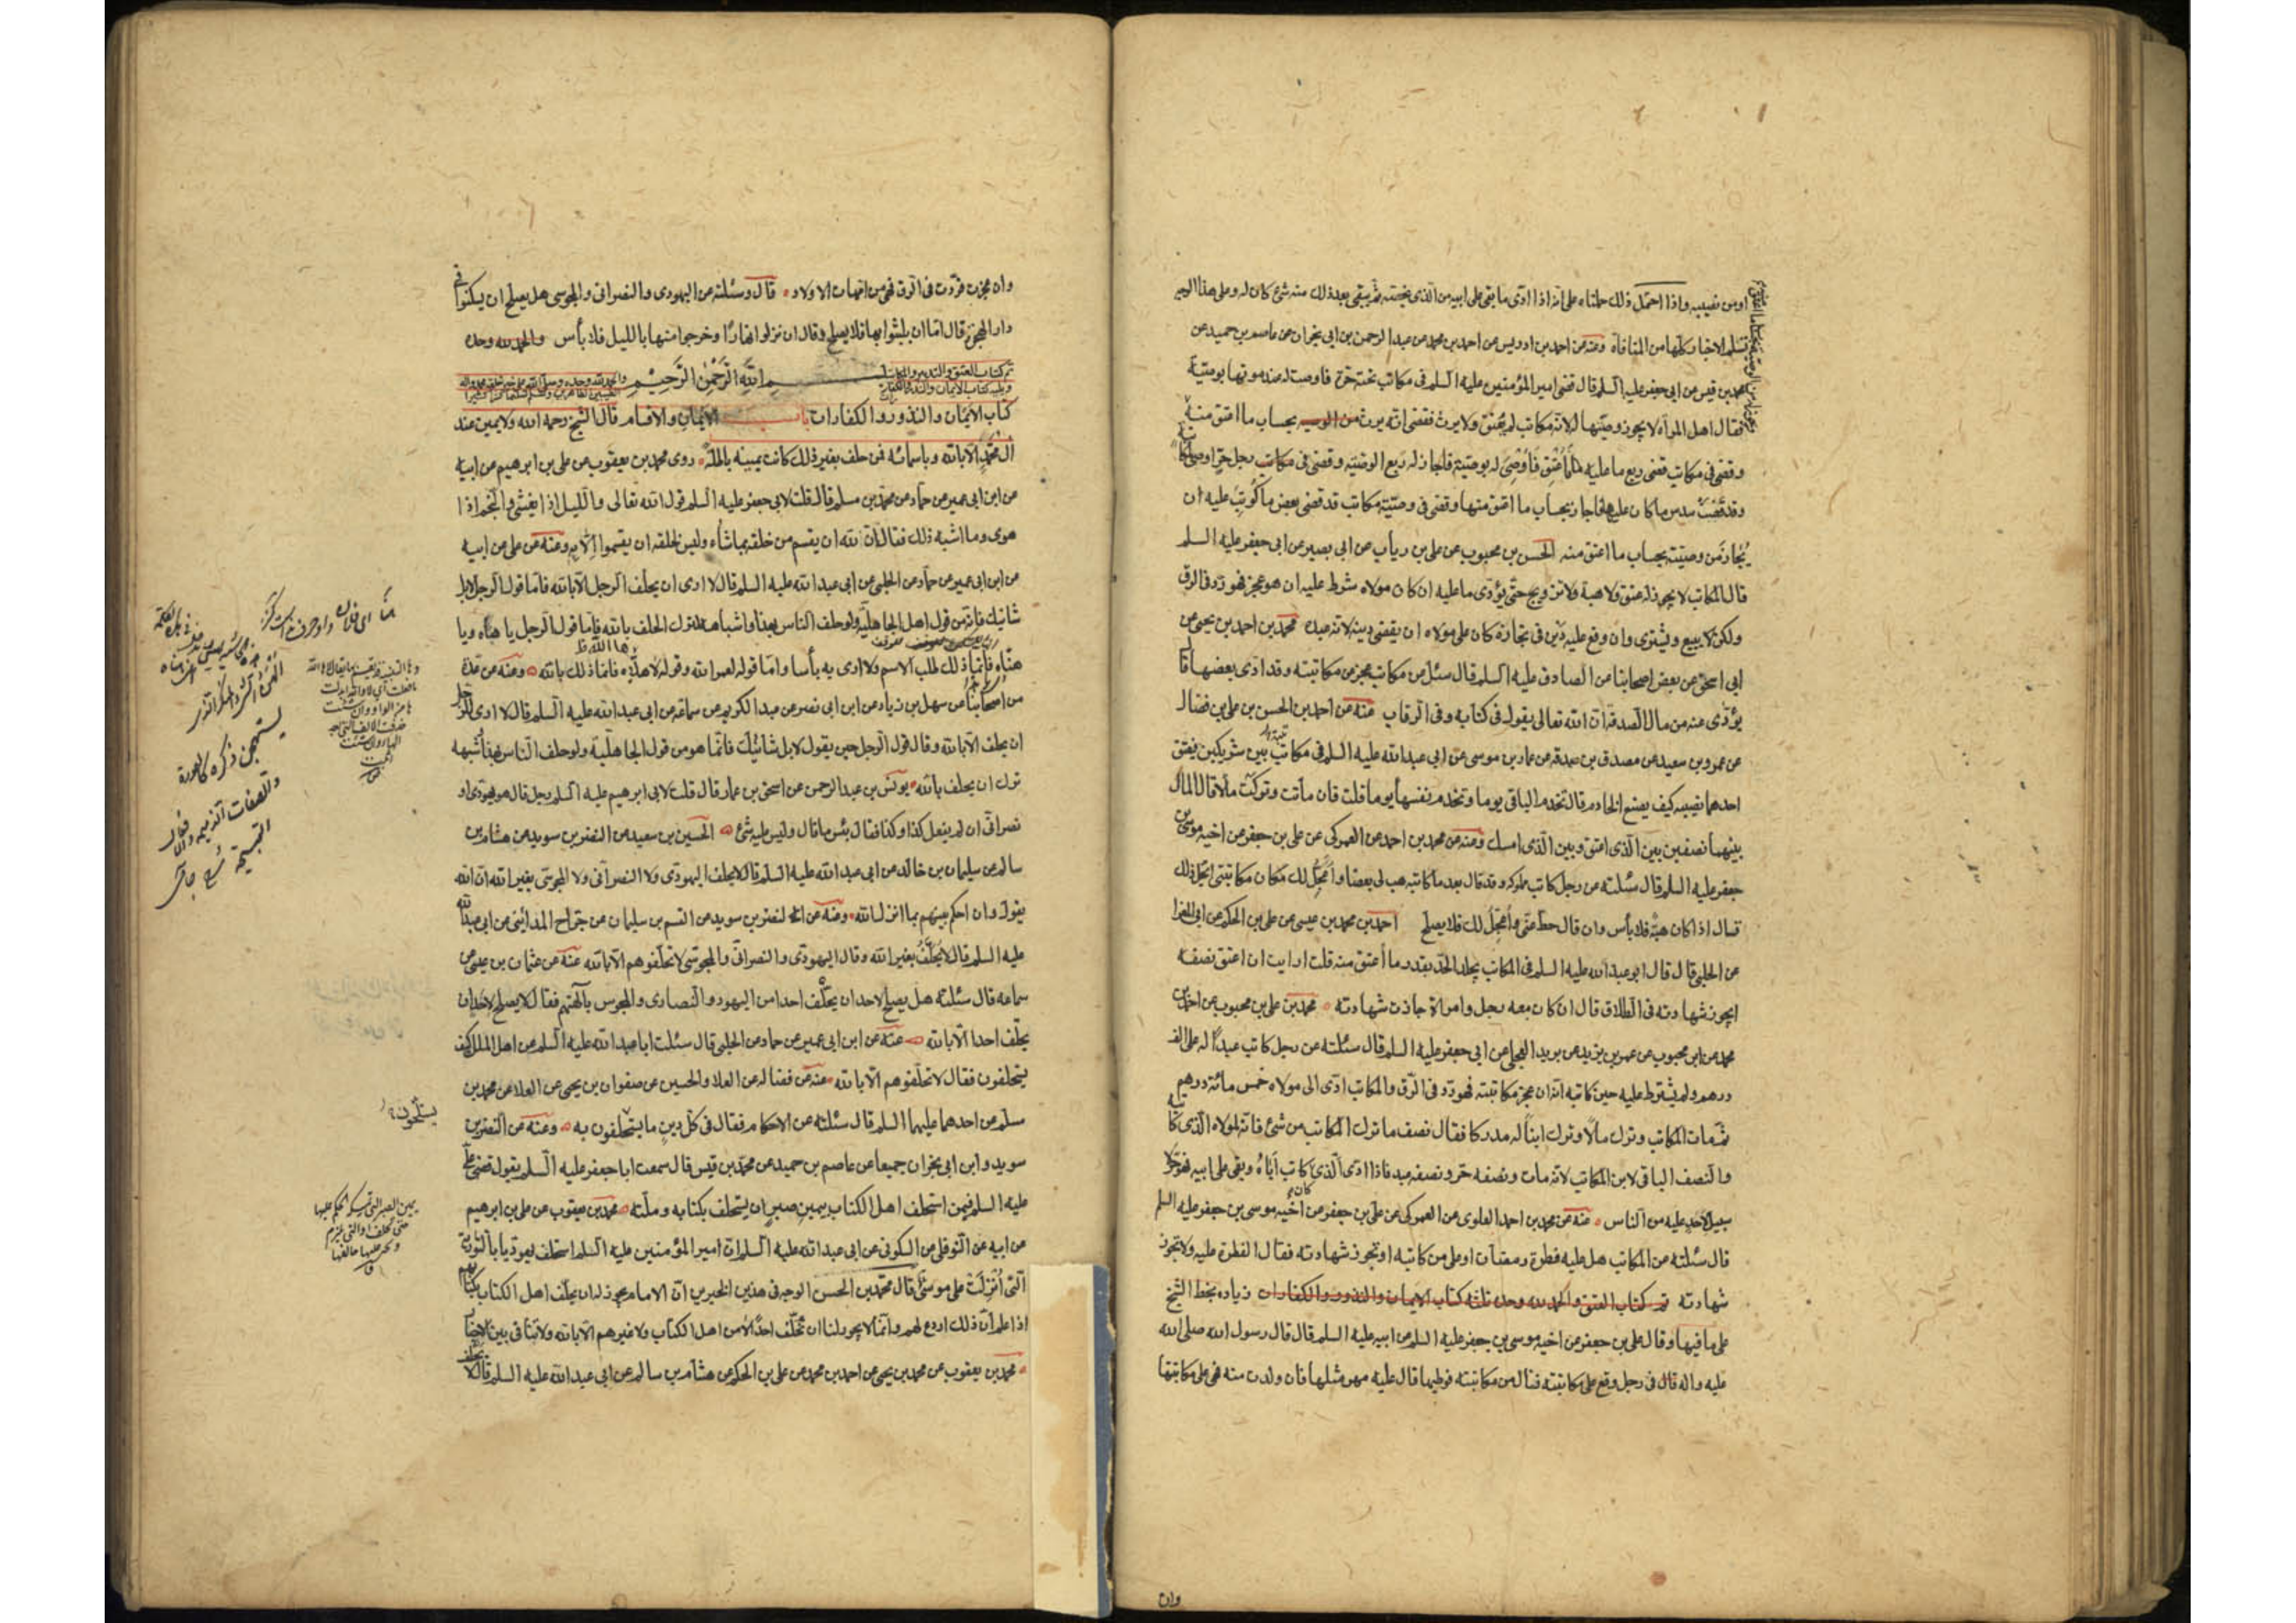 او من نصيبه واذا احتمل ذلك حملناه على انه اذا ادّى ما بقى على ابيه من الذى يخصّه ثم يبقى بعد ذلك منه شئ كان له وعلى هذا الوجه
تسلم الاخبار كلها من المنافاة وعنه عن احمد بن ادريس عن احمد بن محمد عن عبد الرحمن بن ابى نجران عن عاصم بن حميد عن
محمد بن قيس عن ابى جعفر عليه السلم قال قضى امير المؤمنين عليه السلم فى مكاتب تحته حرّة فاوصت له عند موتها بوصيّة
فقال اهل المرأة لا يجوز وصيّتها لانه مكاتب لم يعتق ولا يرث فقضى انه يرث بحساب ما اعتق منه
وقضى فى مكاتب قضى ربع ما عليه فاعتق فاوصى له بوصيّة فاجاز له ربع الوصيّة وقضى فى مكاتب رجل حرّ اوصى
وقد قضت سدس ما كان عليها فاجاز بحساب ما اعتق منها وقضى فى وصيّة مكاتب قد قضى بعض ما كوتب عليه ان
يجاز من وصيّته بحساب ما اعتق منه الحسن بن محبوب عن على بن رياب عن ابى بصير عن ابى جعفر عليه السلم
قال المكاتب لا يجوز له عتق ولا هبة ولا تزويج حتّى يؤدّى ما عليه ان كان مولاه شرط عليه ان هو عجز فهو ردّ فى الرق
ولكن لا يبيع ويشترى وان وقع عليه دين فى تجارة كان على مولاه ان يقضى دينه لانه عبده محمد بن احمد بن يحيى عن
ابى اسحق عن بعض اصحابنا عن الصادق عليه السلم قال سئل عن مكاتب عجز عن مكاتبته وقد ادّى بعضها قال
يؤدّى عنه من مال الصدقة انّ الله تعالى يقول فى كتابه وفى الرقاب عنه عن احمد بن الحسن بن على بن فضال
عن عمرو بن سعيد عن مصدق بن صدقه عن عمار بن موسى عن ابى عبدالله عليه السلم فى مكاتبة بين شريكين يعتق
احدهما نصيبه كيف يصنع الخادم قال تخدم الباقى يوما وتخدم نفسها يوما قلت فان ماتت وتركت مالا قال المال
بينهما نصفين بين الذى اعتق وبين الذى امسك وعنه عن محمد بن احمد عن العمركى عن على بن جعفر عن اخيه موسى بن
جعفر عليه السلم قال سئلته عن رجل كاتب مملوكه وقد قال بعد ما كاتبه هب لى بعضا واعجّل لك مكان مكاتبتى ايحلّ ذلك
قال اذا كان هبة فلا بأس وان قال حطّ عنّى واعجّل لك فلا يصلح احمد بن محمد بن عيسى عن على بن الحكم عن ابى المغرا
عن الحلبى قال قال ابو عبدالله عليه السلم فى المكاتب يجلد الحدّ بقدر ما اعتق منه قلت ارايت ان اعتق نصفه
ايجوز شهادته فى الطلاق قال ان كان معه رجل وامراة جازت شهادته محمد بن على بن محبوب عن احمد بن
محمد عن ابن محبوب عن عمر بن يزيد عن بريد العجلى عن ابى جعفر عليه السلم قال سئلته عن رجل كاتب عبدًا له على الف
درهم ولم يشترط عليه حين كاتبه انه ان عجز عن مكاتبته فهو ردّ فى الرّق والمكاتب ادّى الى مولاه خمس مائة درهم
ثم مات المكاتب وترك مالًا وترك ابنًا له مدركا فقال نصف ما ترك المكاتب من شئ فانه لمولاه الذى كاتبه
والنصف الباقى لابن المكاتب لانه مات ونصفه حرّ ونصفه عبد فاذا ادّى الذى كاتب اباه وبقى على ابيه فهو حرّ لا
سبيل لاحد عليه من الناس عنه عن محمد بن احمد العلوى عن العمركى عن على بن جعفر عن اخيه موسى بن جعفر عليه السلم
قال سئلته عن المكاتب هل عليه فطرة رمضان او على من كاتبه او تجوز شهادته فقال الفطرة عليه ولا تجوز
شهادته تم كتاب العتق والحمد لله وحده تلته كتاب الايمان والنذور والكفارات زيادة بخط الشيخ
على ما فيها وقال على بن جعفر عن اخيه موسى بن جعفر عليه السلم عن ابيه عليه السلم قال قال رسول الله صلى الله
عليه واله قال فى رجل وقع على مكاتبته فنال من مكاتبته فوطيها قال عليه مهر مثلها فان ولدت منه فهى على مكاتبتها
وان
وان عجزت فردّت فى الرق فهى من امّهات الاولاد قال وسئلته عن اليهودى والنصرانى والمجوسى هل يصلح ان يسكنوا فى
دار الهجرة قال امّا ان يلبثوا بها فلا يصلح وقال ان نزلوا نهارًا وخرجوا منها بالليل فلا بأس والحمد لله وحده
تم كتاب العتق والتدبير والمكاتبة
ويليه كتاب الايمان والنذور والكفارات
بسم الله الرّحمن الرّحيم
كتاب الايمان والنذور والكفارات باب الايمان والاقسام قال الشيخ رحمه الله ولا يمين عند
ال محمّد الا بالله وباسمائه فمن حلف بغير ذلك كانت يمينه باطلة روى محمد بن يعقوب عن على بن ابرهيم عن ابيه
عن ابن ابى عمير عن حماد عن محمّد بن مسلم قال قلت لابى جعفر عليه السلم قول الله تعالى والليل اذا يغشى والنجم اذا
هوى وما اشبه ذلك فقال انّ لله ان يقسم من خلقه بما شاء وليس لخلقه ان يقسموا الا به وعنه عن على عن ابيه
عن ابن ابى عمير عن حماد عن الحلبى عن ابى عبدالله عليه السلم قال لا ارى ان يحلف الرجل الا بالله فامّا قول الرجل لا بل
شانئك فانه من قول اهل الجاهليّة ولو حلف الناس بهذا واشباهه لترك الحلف بالله فامّا قول الرجل يا هناه ويا
هناه فانما ذلك طلب الاسم ولا ارى به بأسا وامّا قوله لعمر الله وقوله لاهلاه فانما ذلك بالله وعنه عن عدة
من اصحابنا عن سهل بن زياد عن ابن ابى نصر عن عبد الكريم عن سماعة عن ابى عبدالله عليه السلم قال لا ارى للرجل
ان يحلف الا بالله وقال قول الرجل حين يقول لا بل شانئك فانما هو من قول الجاهليّة ولو حلف الناس بهذا وشبهه
ترك ان يحلف بالله يونس بن عبد الرحمن عن اسحق بن عمار قال قلت لابى ابرهيم عليه السلم رجل قال هو يهودى او
نصرانى ان لم يفعل كذا وكذا فقال بئس ما قال وليس عليه شئ الحسين بن سعيد عن النضر بن سويد عن هشام بن
سالم عن سليمان بن خالد عن ابى عبدالله عليه السلم قال لا يحلف اليهودى ولا النصرانى ولا المجوسى بغير الله ان الله
يقول وان احكم بينهم بما انزل الله وعنه عن النضر بن سويد عن القسم بن سليمان عن جراح المدائنى عن ابى عبدالله
عليه السلم قال لا يحلف بغير الله وقال اليهودى والنصرانى والمجوسى لا تحلفوهم الا بالله عنه عن عثمان بن عيسى عن
سماعه قال سئلته هل يصلح لاحد ان يحلّف احدا من اليهود والنصارى والمجوس بآلهتهم فقال لا يصلح لاحد ان
يحلّف احدا الا بالله عنه عن ابن ابى عمير عن حماد عن الحلبى قال سئلت ابا عبدالله عليه السلم عن اهل الملل كيف
يستحلفون فقال لا تحلّفوهم الا بالله عنه عن فضاله عن العلا والحسين عن صفوان بن يحيى عن العلا عن محمد بن
مسلم عن احدهما عليهما السلم قال سئلته عن الاحكام فقال فى كلّ دين ما يستحلفون به وعنه عن النضر بن
سويد وابن ابى نجران جميعا عن عاصم بن حميد عن محمّد بن قيس قال سمعت ابا جعفر عليه السلم يقول قضى على
عليه السلم فيمن استحلف اهل الكتاب بيمين صبر ان يستحلف بكتابه وملّته محمد بن يعقوب عن على بن ابرهيم
عن ابيه عن النوفلى عن السكونى عن ابى عبدالله عليه السلم ان امير المؤمنين عليه السلم استحلف يهوديّا بالتورية
التى انزلت على موسى قال محمد بن الحسن الوجه فى هذين الخبرين ان الامام يجوز له ان يحلّف اهل الكتاب بكتابهم
اذا علم ان ذلك اردع لهم وانما لا يجوز لنا ان نحلّف احدًا من اهل الكتاب ولا غيرهم الا بالله ولا تنافى بين الاخبار
محمد بن يعقوب عن محمد بن يحيى عن احمد بن محمد عن على بن الحكم عن هشام بن سالم عن ابى عبدالله عليه السلم قال لا
يستحلّون
يمين الصبر التى